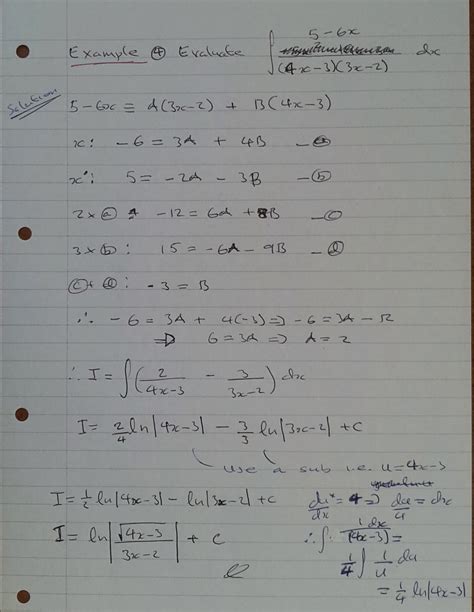 Example ④ Evaluate ∫ 5-6x / (4x-3)(3x-2) dx
Solution
5-6x ≡ A(3x-2) + B(4x-3)
x: -6 = 3A + 4B —ⓐ
x⁰: 5 = -2A - 3B —ⓑ
2×ⓐ: -12 = 6A + 8B —ⓒ
3×ⓑ: 15 = -6A - 9B —ⓓ
ⓒ+ⓓ: -3 = B
∴ -6 = 3A + 4(-3) => -6 = 3A - 12
=> 6 = 3A => A = 2
∴ I = ∫ ( 2/4x-3 - 3/3x-2 ) dx
I = 2/4 ln|4x-3| - 3/3 ln|3x-2| + c
Use a sub i.e. u = 4x-3
I = 1/2 ln|4x-3| - ln|3x-2| + c
du/dx = 4 => du/4 = dx
∴ ∫ 1dx/(4x-3) =
I = ln| √4x-3 / 3x-2 | + c
1/4 ∫ 1/u du
= 1/4 ln|4x-3|